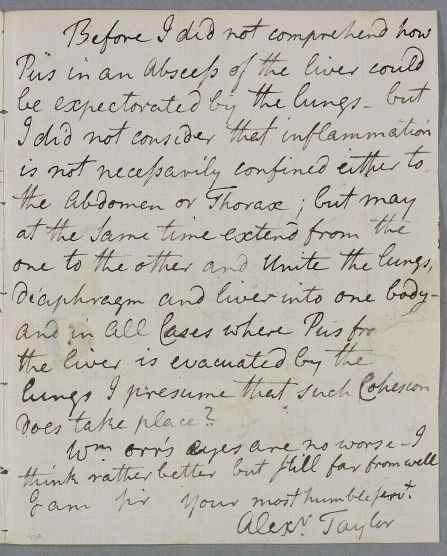 Before I did not comprehend how
Pus in an Abscess of the liver could
be expectorated by the lungs - but
I did not consider that inflammation
is not necessarily confined either to
the Abdomen or Thorax; but may
at the same time extend from the
one to the other and Unite the lungs,
diaphragm and liver into one body -
and in all Cases where Pus fro
the liver is evacuated by the
lungs I presume that such Cohesion
does take place?
Wm Orr's eyes are no worse - I
think rather better but still far from well
I am Sir your most humble servt.
Alexr. Taylor